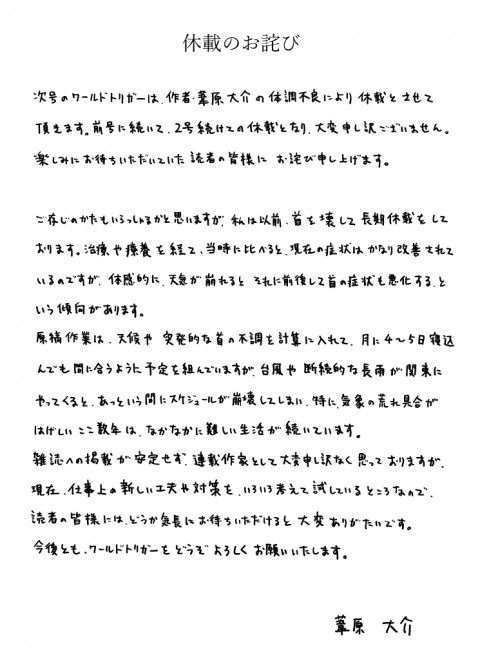 休載のお詫び
次号のワールドトリガーは、作者・葦原大介の体調不良により休載とさせて
頂きます。前号に続いて、2号続けての休載となり、大変申し訳ございません。
楽しみにお待ちいただいていた読者の皆様にお詫び申し上げます。
ご存じのかたもいらっしゃるかと思いますが、私は以前、首を壊して長期休載をして
おります。治療や療養を経て、当時に比べると、現在の症状はかなり改善されて
いるのですが、体感的に、天気が崩れるとそれに前後して首の症状も悪化する、と
いう傾向があります。
原稿作業は、天候や突発的な首の不調を計算に入れて、月に4~5日寝込
んでも間に合うように予定を組んでいますが、台風や断続的な長雨が関東に
やってくると、あっという間にスケジュールが崩壊してしまい、特に、気象の荒れ具合が
はげしいここ数年は、なかなかに難しい生活が続いています。
雑誌への掲載が安定せず、連載作家として大変申し訳なく思っておりますが、
現在、仕事上の新しい工夫や対策を、いろいろ考えて試しているところなので、
読者の皆様には、どうか気長にお待ちいただけると大変ありがたいです。
今後とも、ワールドトリガーをどうぞよろしくお願いいたします。
葦原 大介